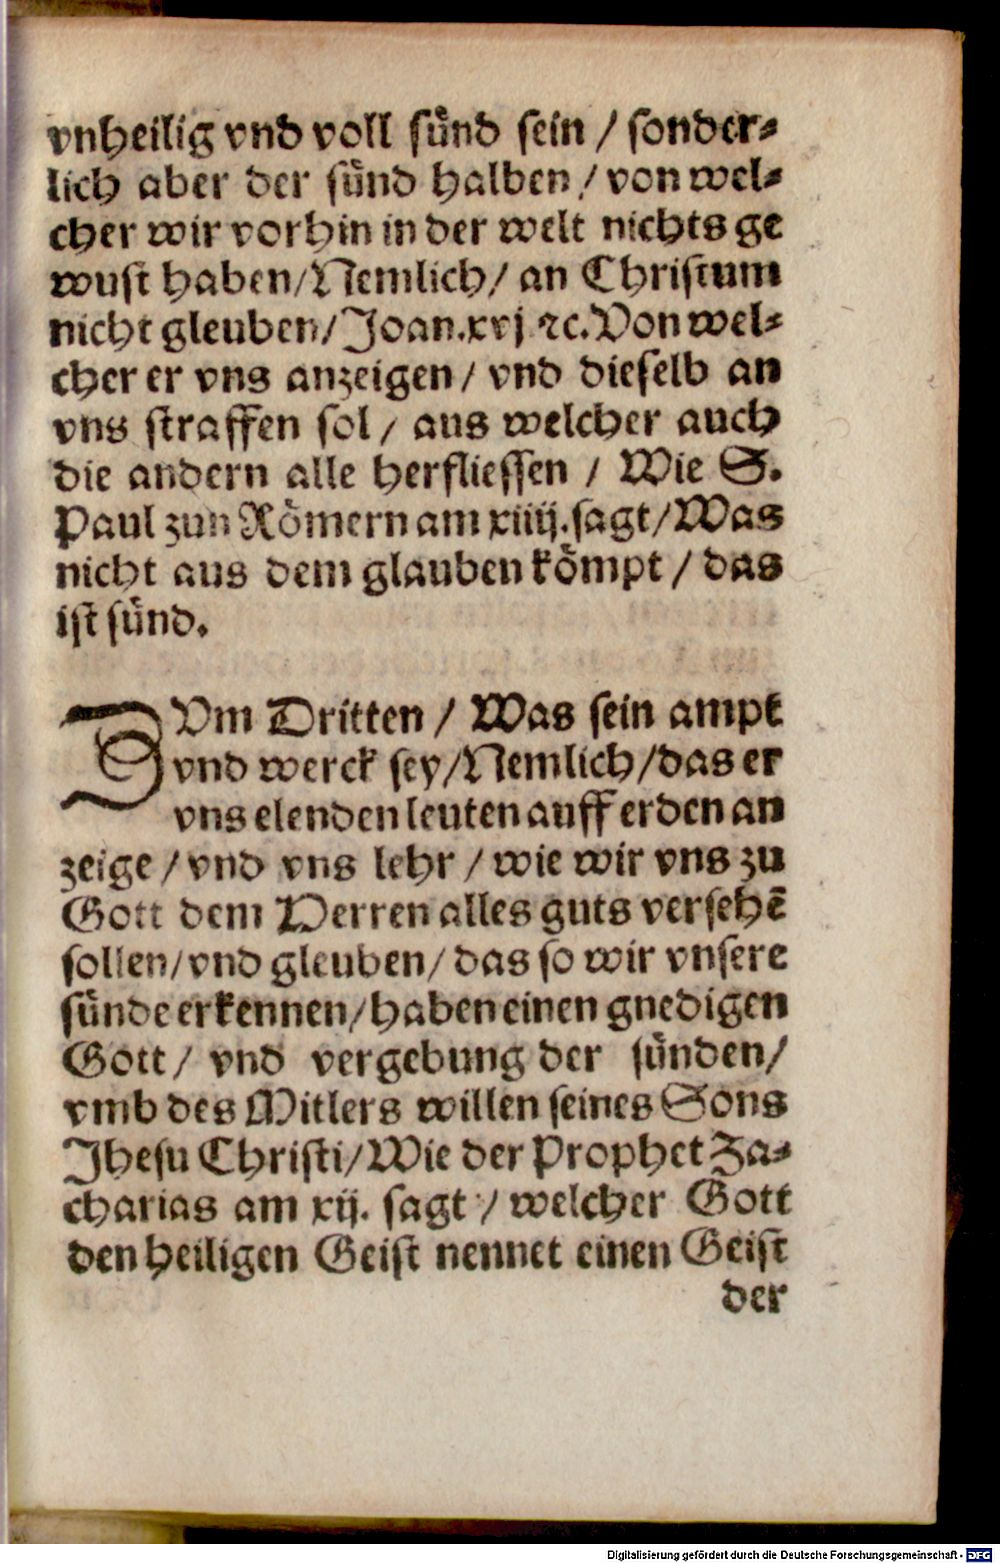 vnheilig vnd voll sünd sein / sonder⸗
lich aber der sünd halben / von wel⸗
cher wir vorhin in der welt nichts ge
wust haben / Nemlich / an Christum
nicht gleuben / Joan. xvj ꝛc. Von wel⸗
cher er vns anzeigen / vnd dieselb an
vns straffen sol / aus welcher auch
die andern alle herfliessen / Wie S.
Paul zun Römern am xiiij. sagt / Was
nicht aus dem glauben kömpt / das
ist sünd.
ZVm Dritten / Was sein ampt
vnd werck sey / Nemlich / das er
vns elenden leuten auff erden an
zeige / vnd vns lehr / wie wir vns zu
Gott dem HERREN alles guts versehē
sollen / vnd gleuben / das so wir vnsere
sünde erkennen / haben einen gnedigen
Gott / vnd vergebung der sünden /
vmb des Mitlers willen seines Sons
Jhesu Christi / Wie der Prophet Za⸗
charias am xij. sagt / welcher Gott
den heiligen Geist nennet einen Geist
der
Digitalisierung gefördert durch die Deutsche Forschungsgemeinschaft - DFG